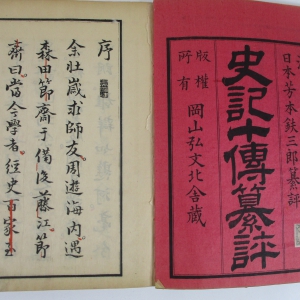 日本芳本鉄三郎纂評
史記十傳纂評
版權所有
岡山弘文北舎蔵
序
余壮歳求師友周遊海内遇
森田節齋于備後藤江節
齋曰當今學者經史百家